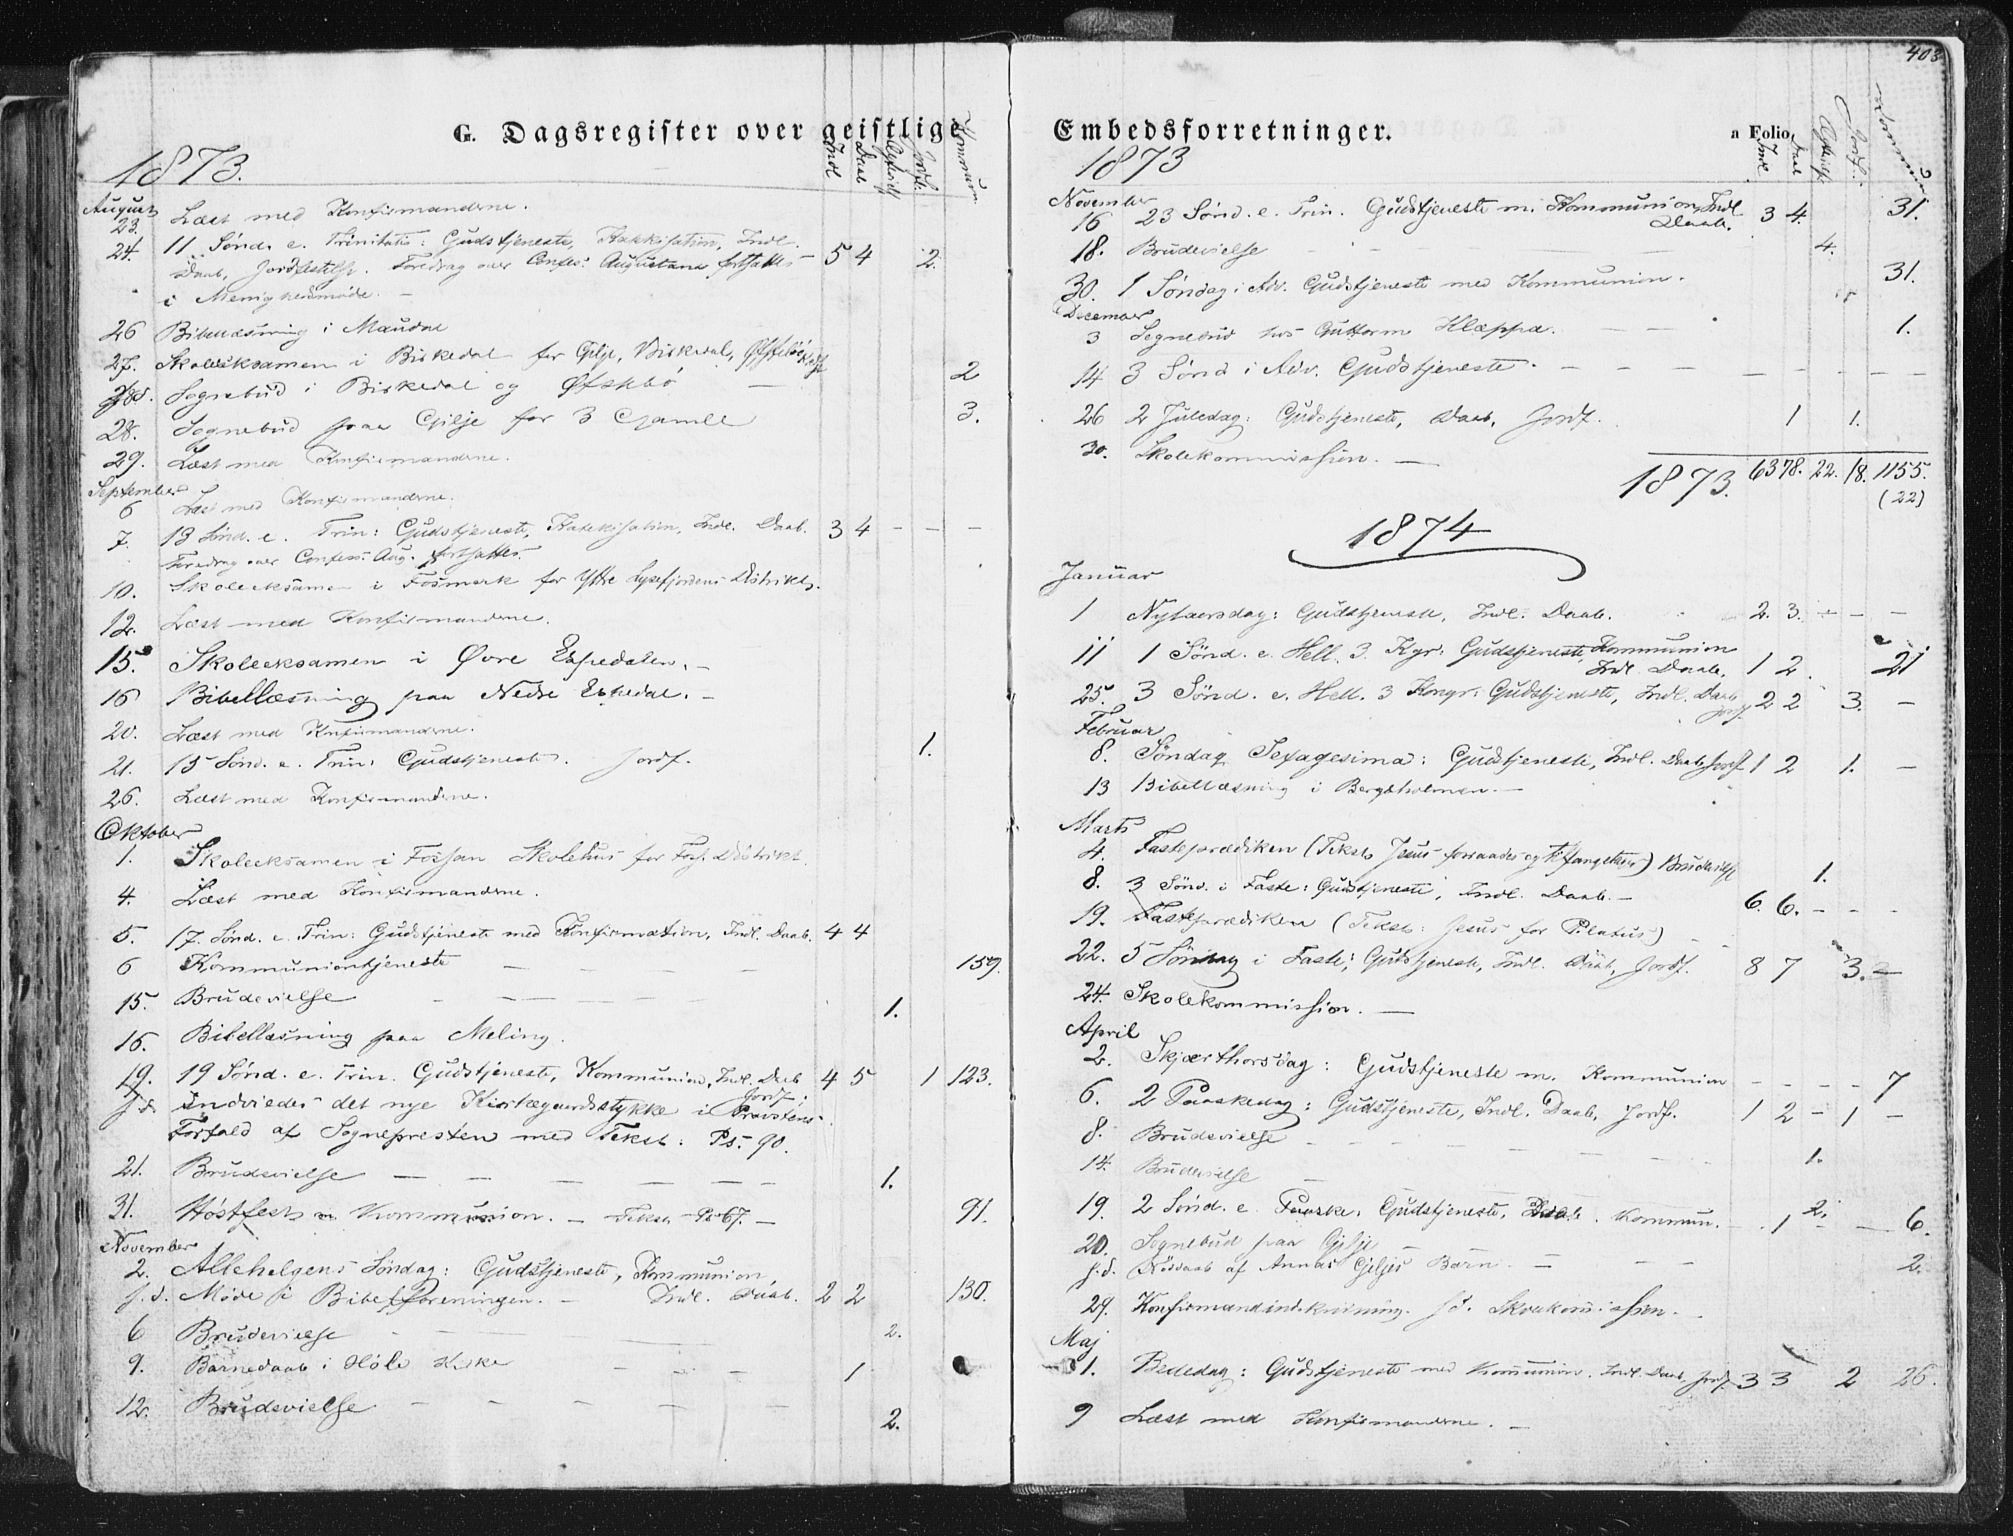 G. Dagsregister over geistlige
1873.
Indl Daab Jordf. Kommun.
August
23. Læst med Konfirmanderne.
24. 11 Sønd. e. Trinitatis: Gudstjeneste, Katekisation, Indl.
Daab, Jordfæstelse. Foredrag over Confess: Augustana fortsattes - 5 4 2.
i Menighedsmøde. -
26 Bibellæsning i Maudal
27. Skoleeksamen i Birkedal for Gilje, Birkedal,
s.d. Sognebud i Birkedal og Øfstebø - 2
28. Sognebud paa Gilje for 3 Gamle 3.
29. Læst med Konfirmanderne.
September
6 Læst med Konfirmanderne.
7. 13 Sønd. e. Trin: Gudstjeneste, Katekisation, Indl. Daab. 3 4 - - -
Foredrag over Confess. Aug. fortsattes.
10. Skoleeksamen i Fosmark for Ytre Lysefjordens Distrikt.
12. Læst med Konfirmanderne.
15. Skoleeksamen i Øvre Espedalen. -
16 Bibellæsning paa Nedre Espedal. -
20. Læst med Konfirmanderne.
21. 15 Sønd. e. Trin: Gudstjeneste. Jordf. 1.
26. Læst med Konfirmanderne.
Oktober
1. Skoleeksamen i Fossan Skolehus for Foss. Distrikt.
4. Læst med Konfirmanderne.
5. 17. Sønd. e. Trin: Gudstjeneste med Konfirmation, Indl. Daab. 4 4
6 Kommuniontjeneste - - - 159.
15. Brudevielse - - - - 1.
16. Bibellæsning paa Meling.
19. 19 Sønd. e. Trin. Gudstjeneste, Kommunion, Indl. Daab 4 5 1 123.
Jordf.
s.d. Indviedes det nye Kirkegaardsstykke i Provstens
Forfald af Sognepresten med Tekst: Ps. 90.
21. Brudevielse - - - - - 1.
31. Høstfest m Kommunion. - Tekst Ps 67. - 91.
November
2. Allehelgens Søndag: Gudstjeneste, Kommunion,
s.d. Møde i Bibelforeningen. - Indl. Daab. 2 2 130.
6 Brudevielse - - 2.
9. Barnedaab i Høle Kirke - - - 1
12. Brudevielse - - - - - 2.
Embedsforretninger.
a Folio
403
1873
Indl. Daab Jordf.
November
16 23 Sønd. e. Trin. Gudstjeneste m. Kommunion, Indl. 3 4. 31.
Daab.
18. Brudevielse - - - - 4.
30. 1 Søndag i Adv. Gudstjeneste med Kommunion. 31.
December
3 Sognebud hos Guttorm Kleppa. - - 1.
14 3 Sønd i Adv. Gudstjeneste. - - - - - - - -
26 2 Juledag: Gudstjeneste, Daab, Jordf. 1 1.
30. Skolekommission. -
1873. 63 78. 22. 18. 1155.
(22)
1874
Januar
1 Nytaarsdag: Gudstjeneste, Indl. Daab. 2. 3. - - -
11 1 Sønd. e. Hell. 3. Kgr: Gudstjeneste, Kommunion
Indl. Daab. 1 2. 21
25. 3 Sønd. e. Hell. 3 Kongr: Gudstjeneste, Indl. Daab 2 2 3. -
Jordf.
Februar
8. Søndag Sexagesima: Gudstjeneste, Indl. Daab Jordf 1 2 1. -
13 Bibellæsning i Bergsholmen. -
Marts
4. Fasteprædiken (Tekst: Jesus forraades og tilfangetages) Brudevielse 1.
8. 3 Sønd. i Faste: Gudstjeneste, Indl. Daab. - 6. 6. - - -
19. Fasteprædiken (Tekst: Jesus for Pilatus)
22. 5 Søndag i Faste: Gudstjeneste, Indl. Daab, Jordf. 8 7 3. -
24. Skolekommission. -
April
2. Skjærthorsdag: Gudstjeneste m. Kommunion - - - - 7
6. 2 Paaskedag: Gudstjeneste, Indl. Daab, Jordf. 1 2 - 1 -
8. Brudevielse - - - - -
14. Brudevielse - - - - 1.
19. 2 Sønd. e. Paaske: Gudstjeneste, Daab. Kommun. - 1 2. - 6.
20. Sognebud paa Gilje
s.d. Hjdaab af Annas Giljes Barn - - - 2.
29. Konfirmandindskrivning. s.d. Skolekommission.
Maj
1. Bededag: Gudstjeneste med Kommunion. Indl. Daab, Jordf. 3 3 2 26.
9 Læst med Konfirmanderne. -